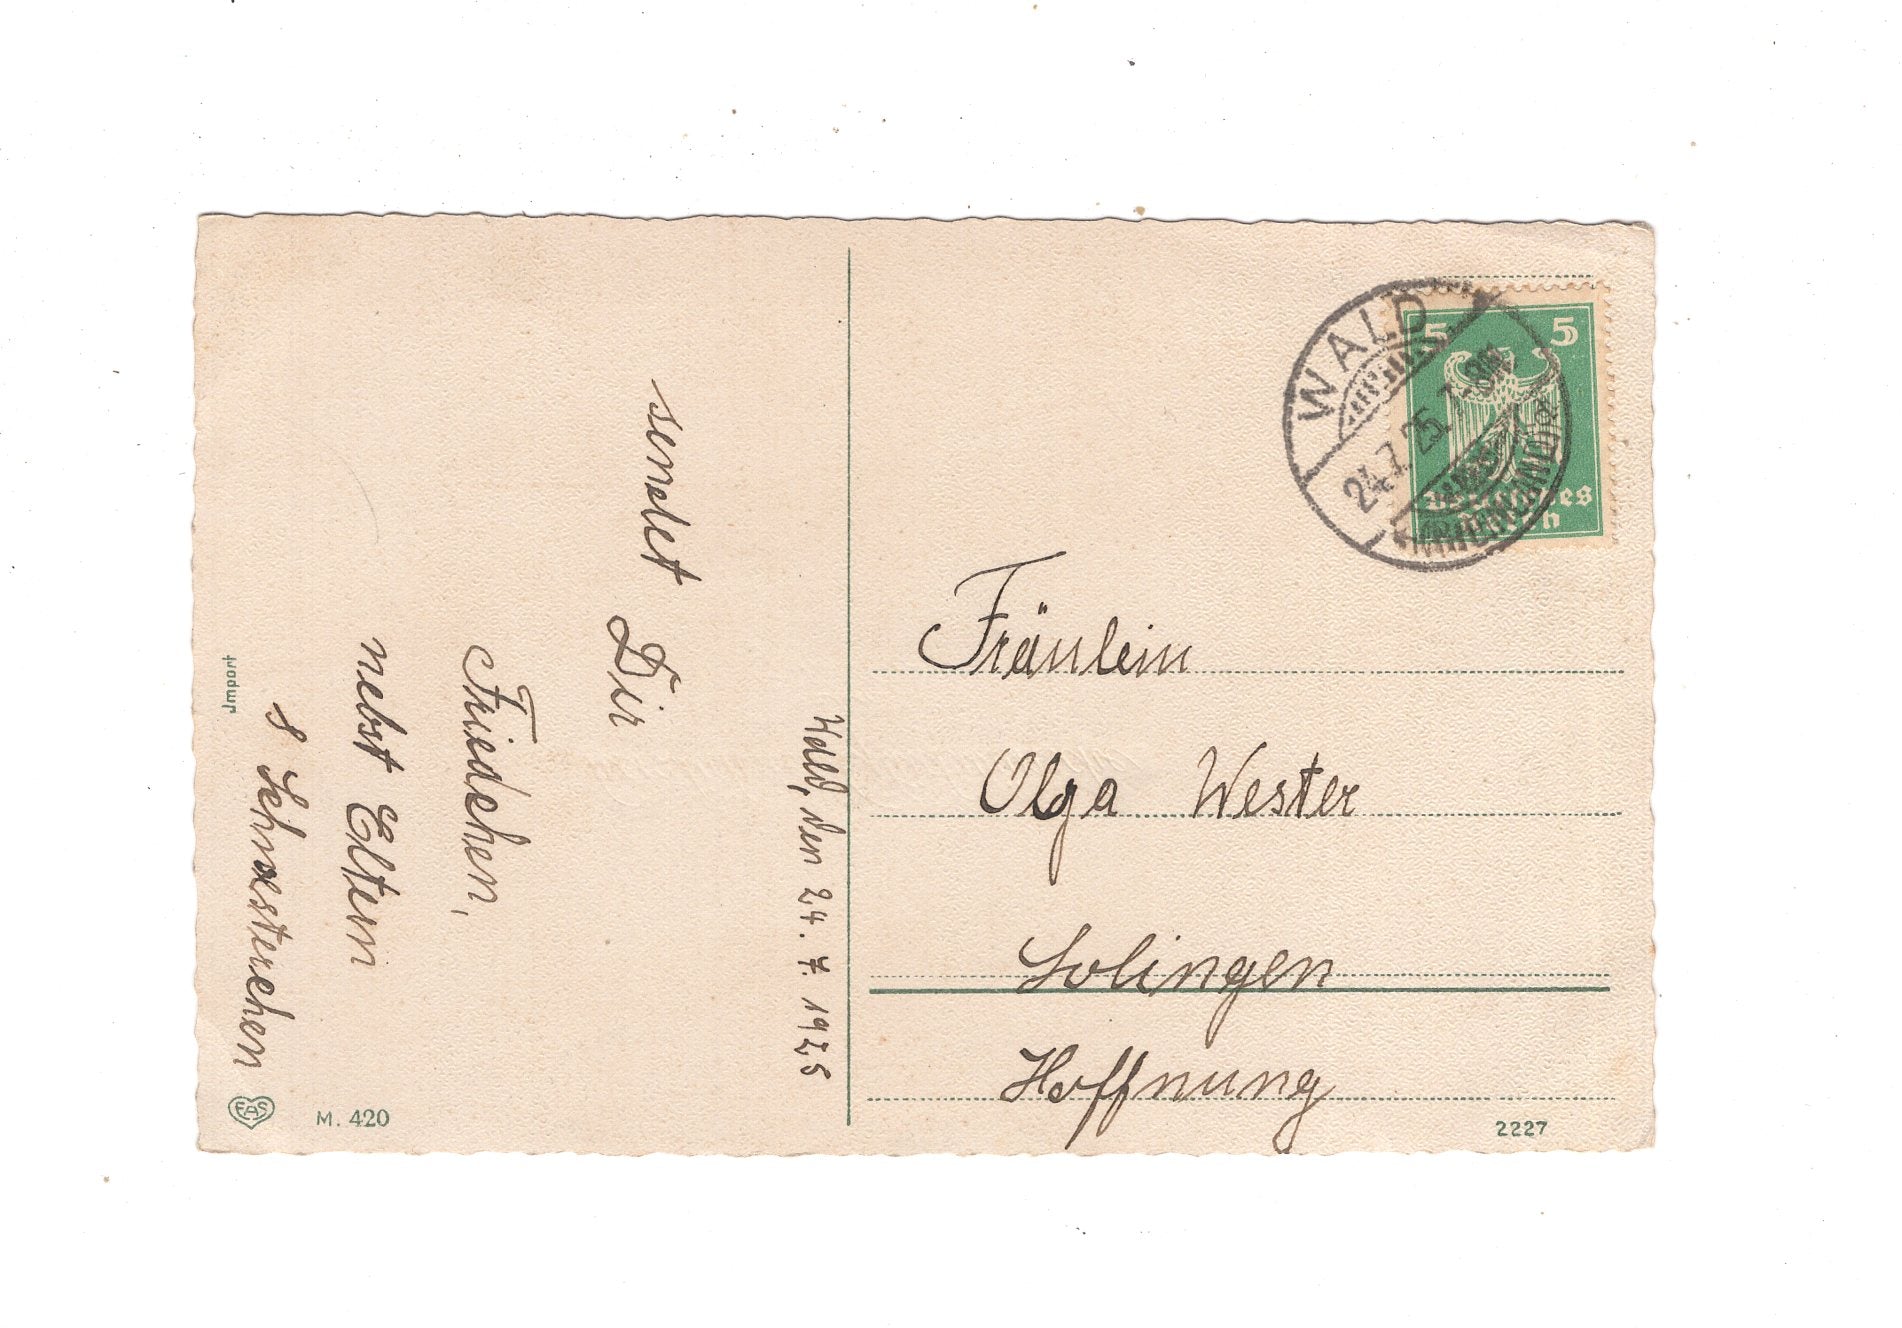 Wald, den 24. 7. 1925
sendet
Dir
Friedchen,
nebst Eltern
8 Schwesterchen
Import
EAS
M. 420
WALD
24.7.25. 7-8N
(RHEINLAND)
5 5
Deutsches
Reich
Fräulein
Olga Wester
Solingen
Hoffnung
2227